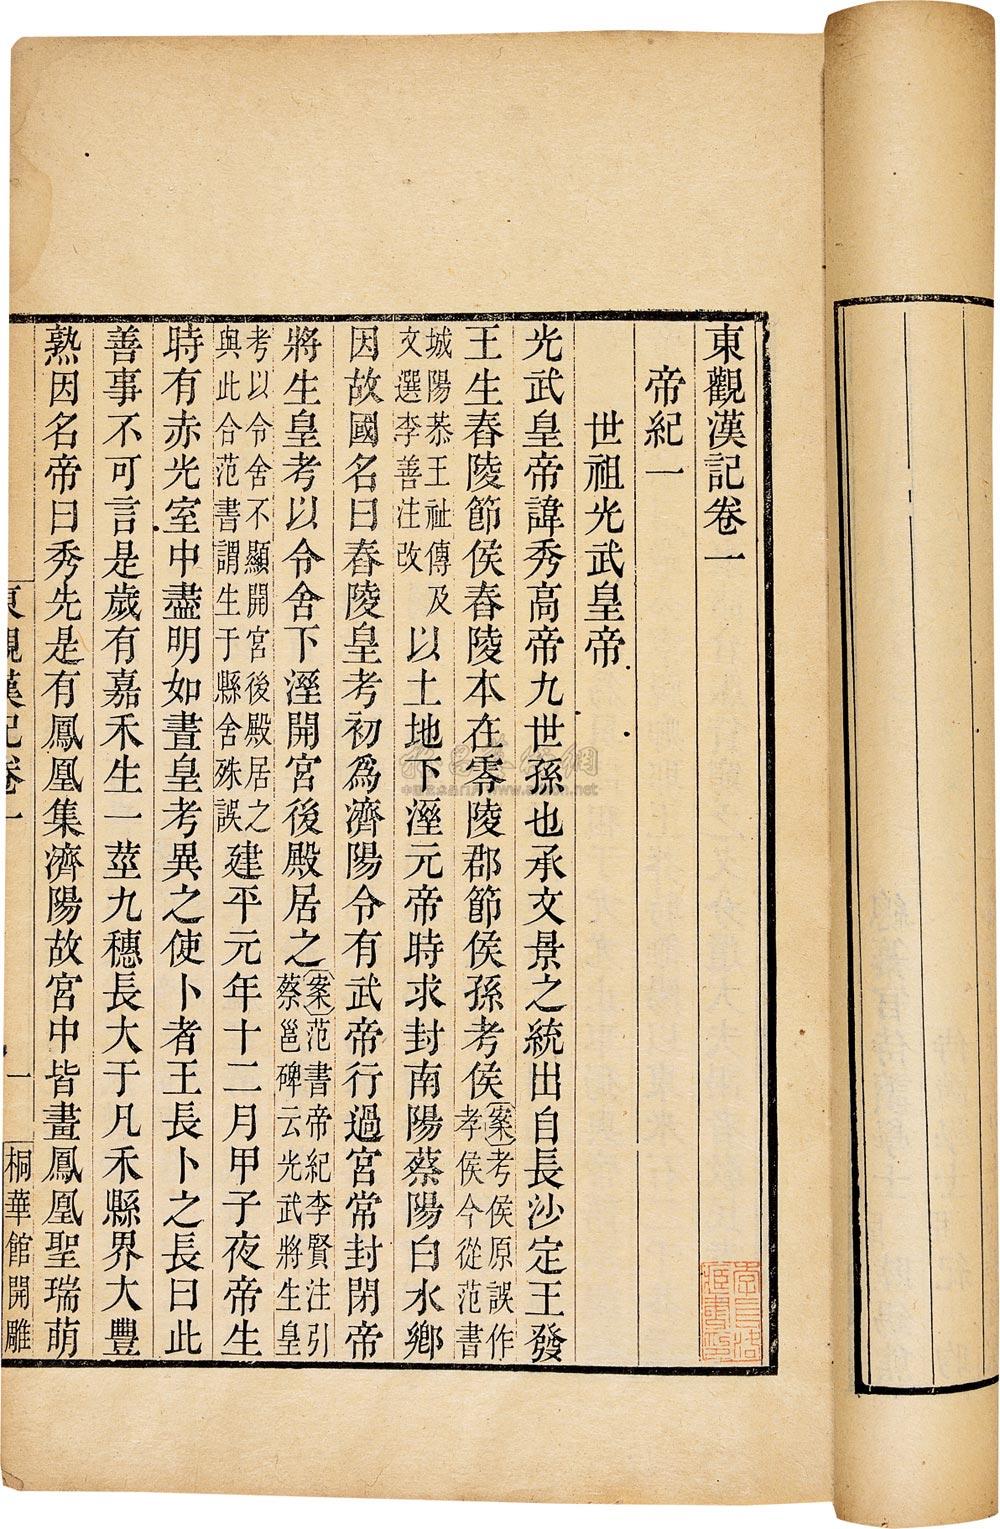 東觀漢記卷一
帝紀一
世祖光武皇帝
光武皇帝諱秀高帝九世孫也承文景之統出自長沙定王發
王生舂陵節侯舂陵本在零陵郡節侯孫考侯案考侯原誤作孝侯今從范書
城陽恭王祉傳及文選李善注改以土地下溼元帝時求封南陽蔡陽白水鄉
因故國名曰舂陵皇考初爲濟陽令有武帝行過宮常封閉帝
將生皇考以令舍下溼開宮後殿居之案范書帝紀李賢注引蔡邕碑云光武將生皇
考以令舍不顯開宮後殿居之與此合范書謂生于縣舍殊誤建平元年十二月甲子夜帝生
時有赤光室中盡明如晝皇考異之使卜者王長卜之長曰此
善事不可言是歲有嘉禾生一莖九穗長大于凡禾縣界大豐
熟因名帝曰秀先是有鳳凰集濟陽故宮中皆畫鳳凰聖瑞萌
東觀漢記卷一
一
桐華館開雕